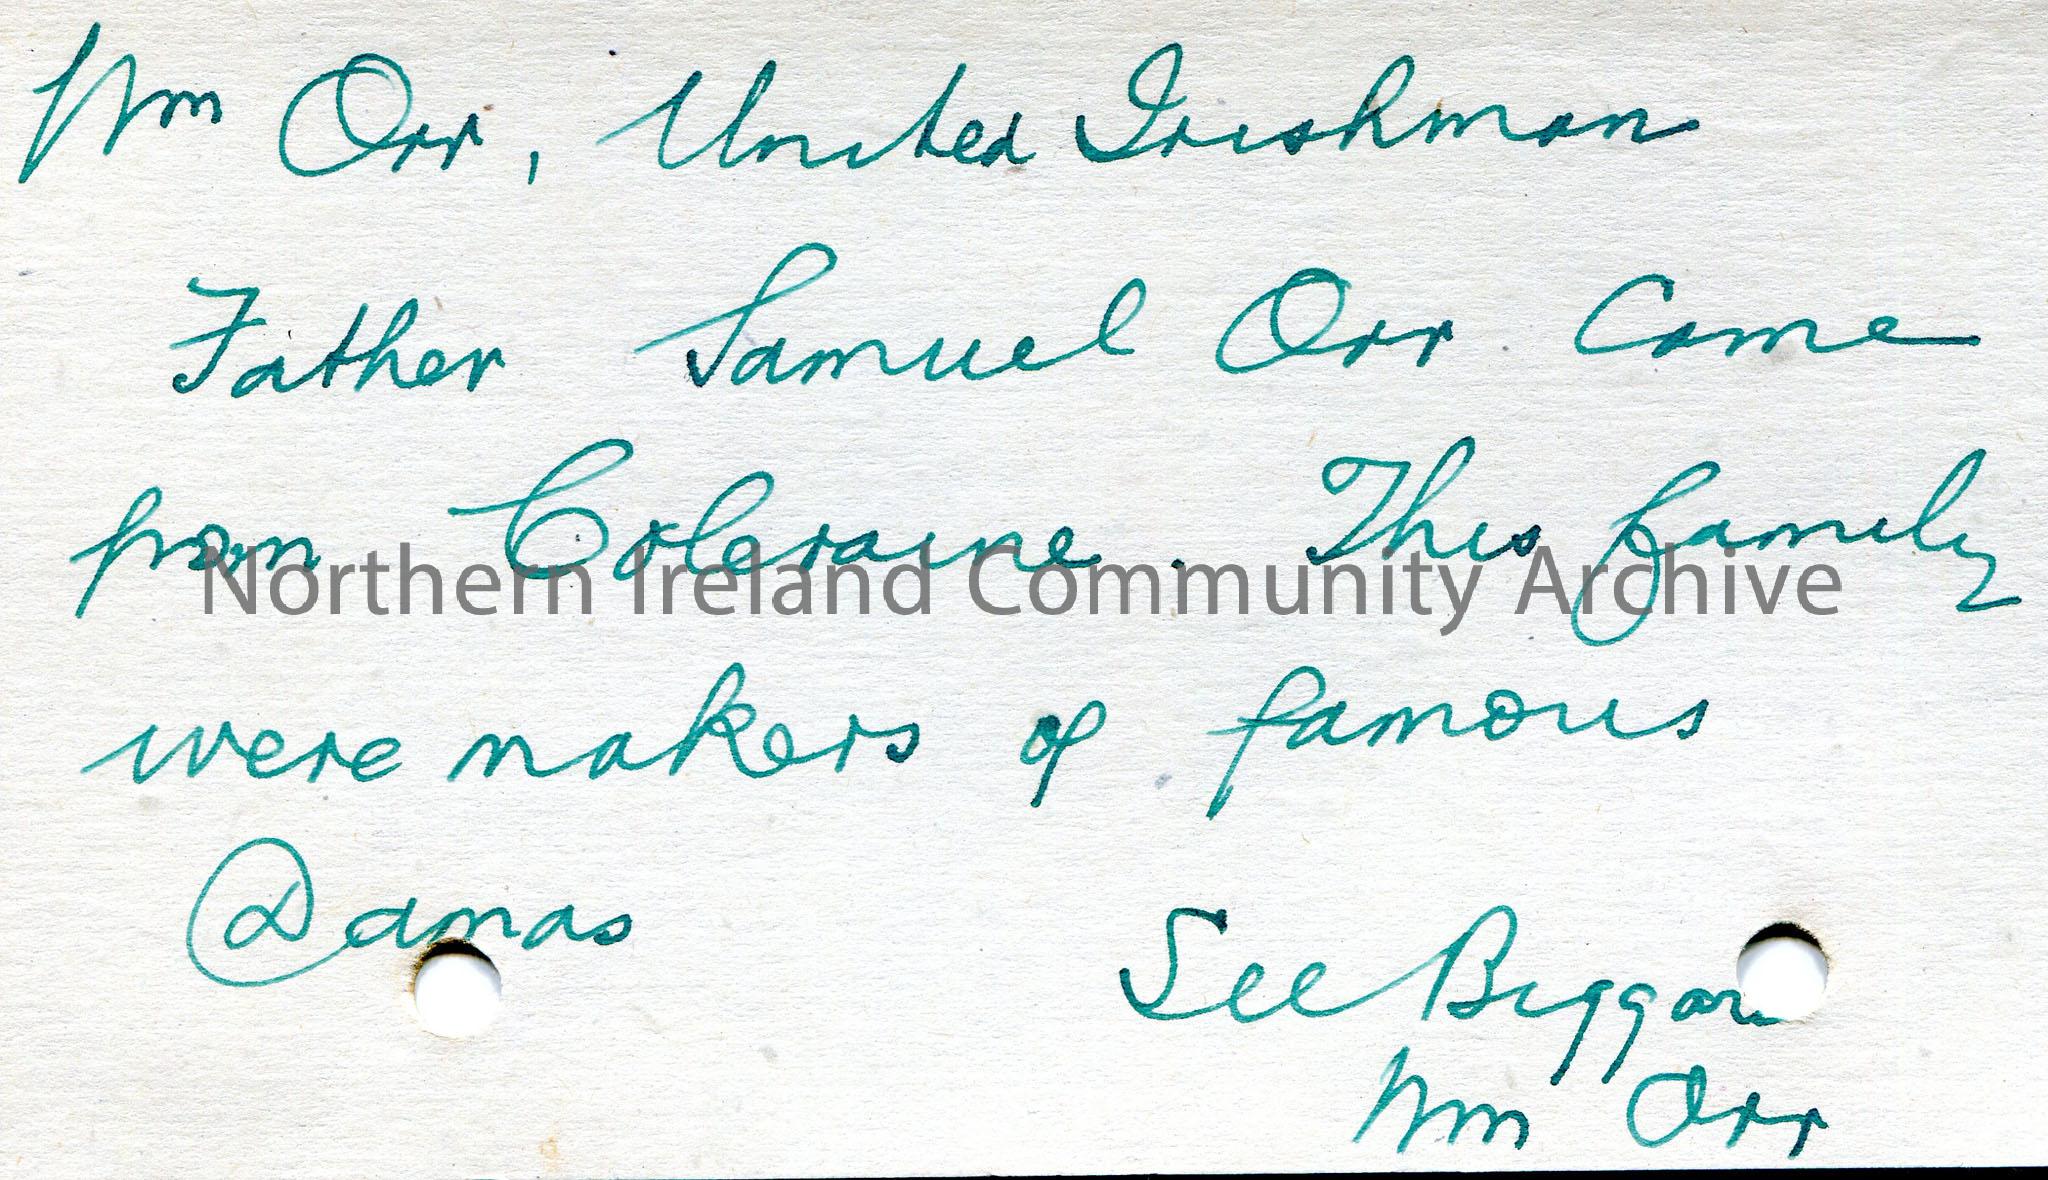 Wm Orr, United Irishman
Father Samuel Orr Came
from Coleraine. This family
Northern Ireland Community Archive
were makers of famous
Damas
See Biggar
Wm Orr